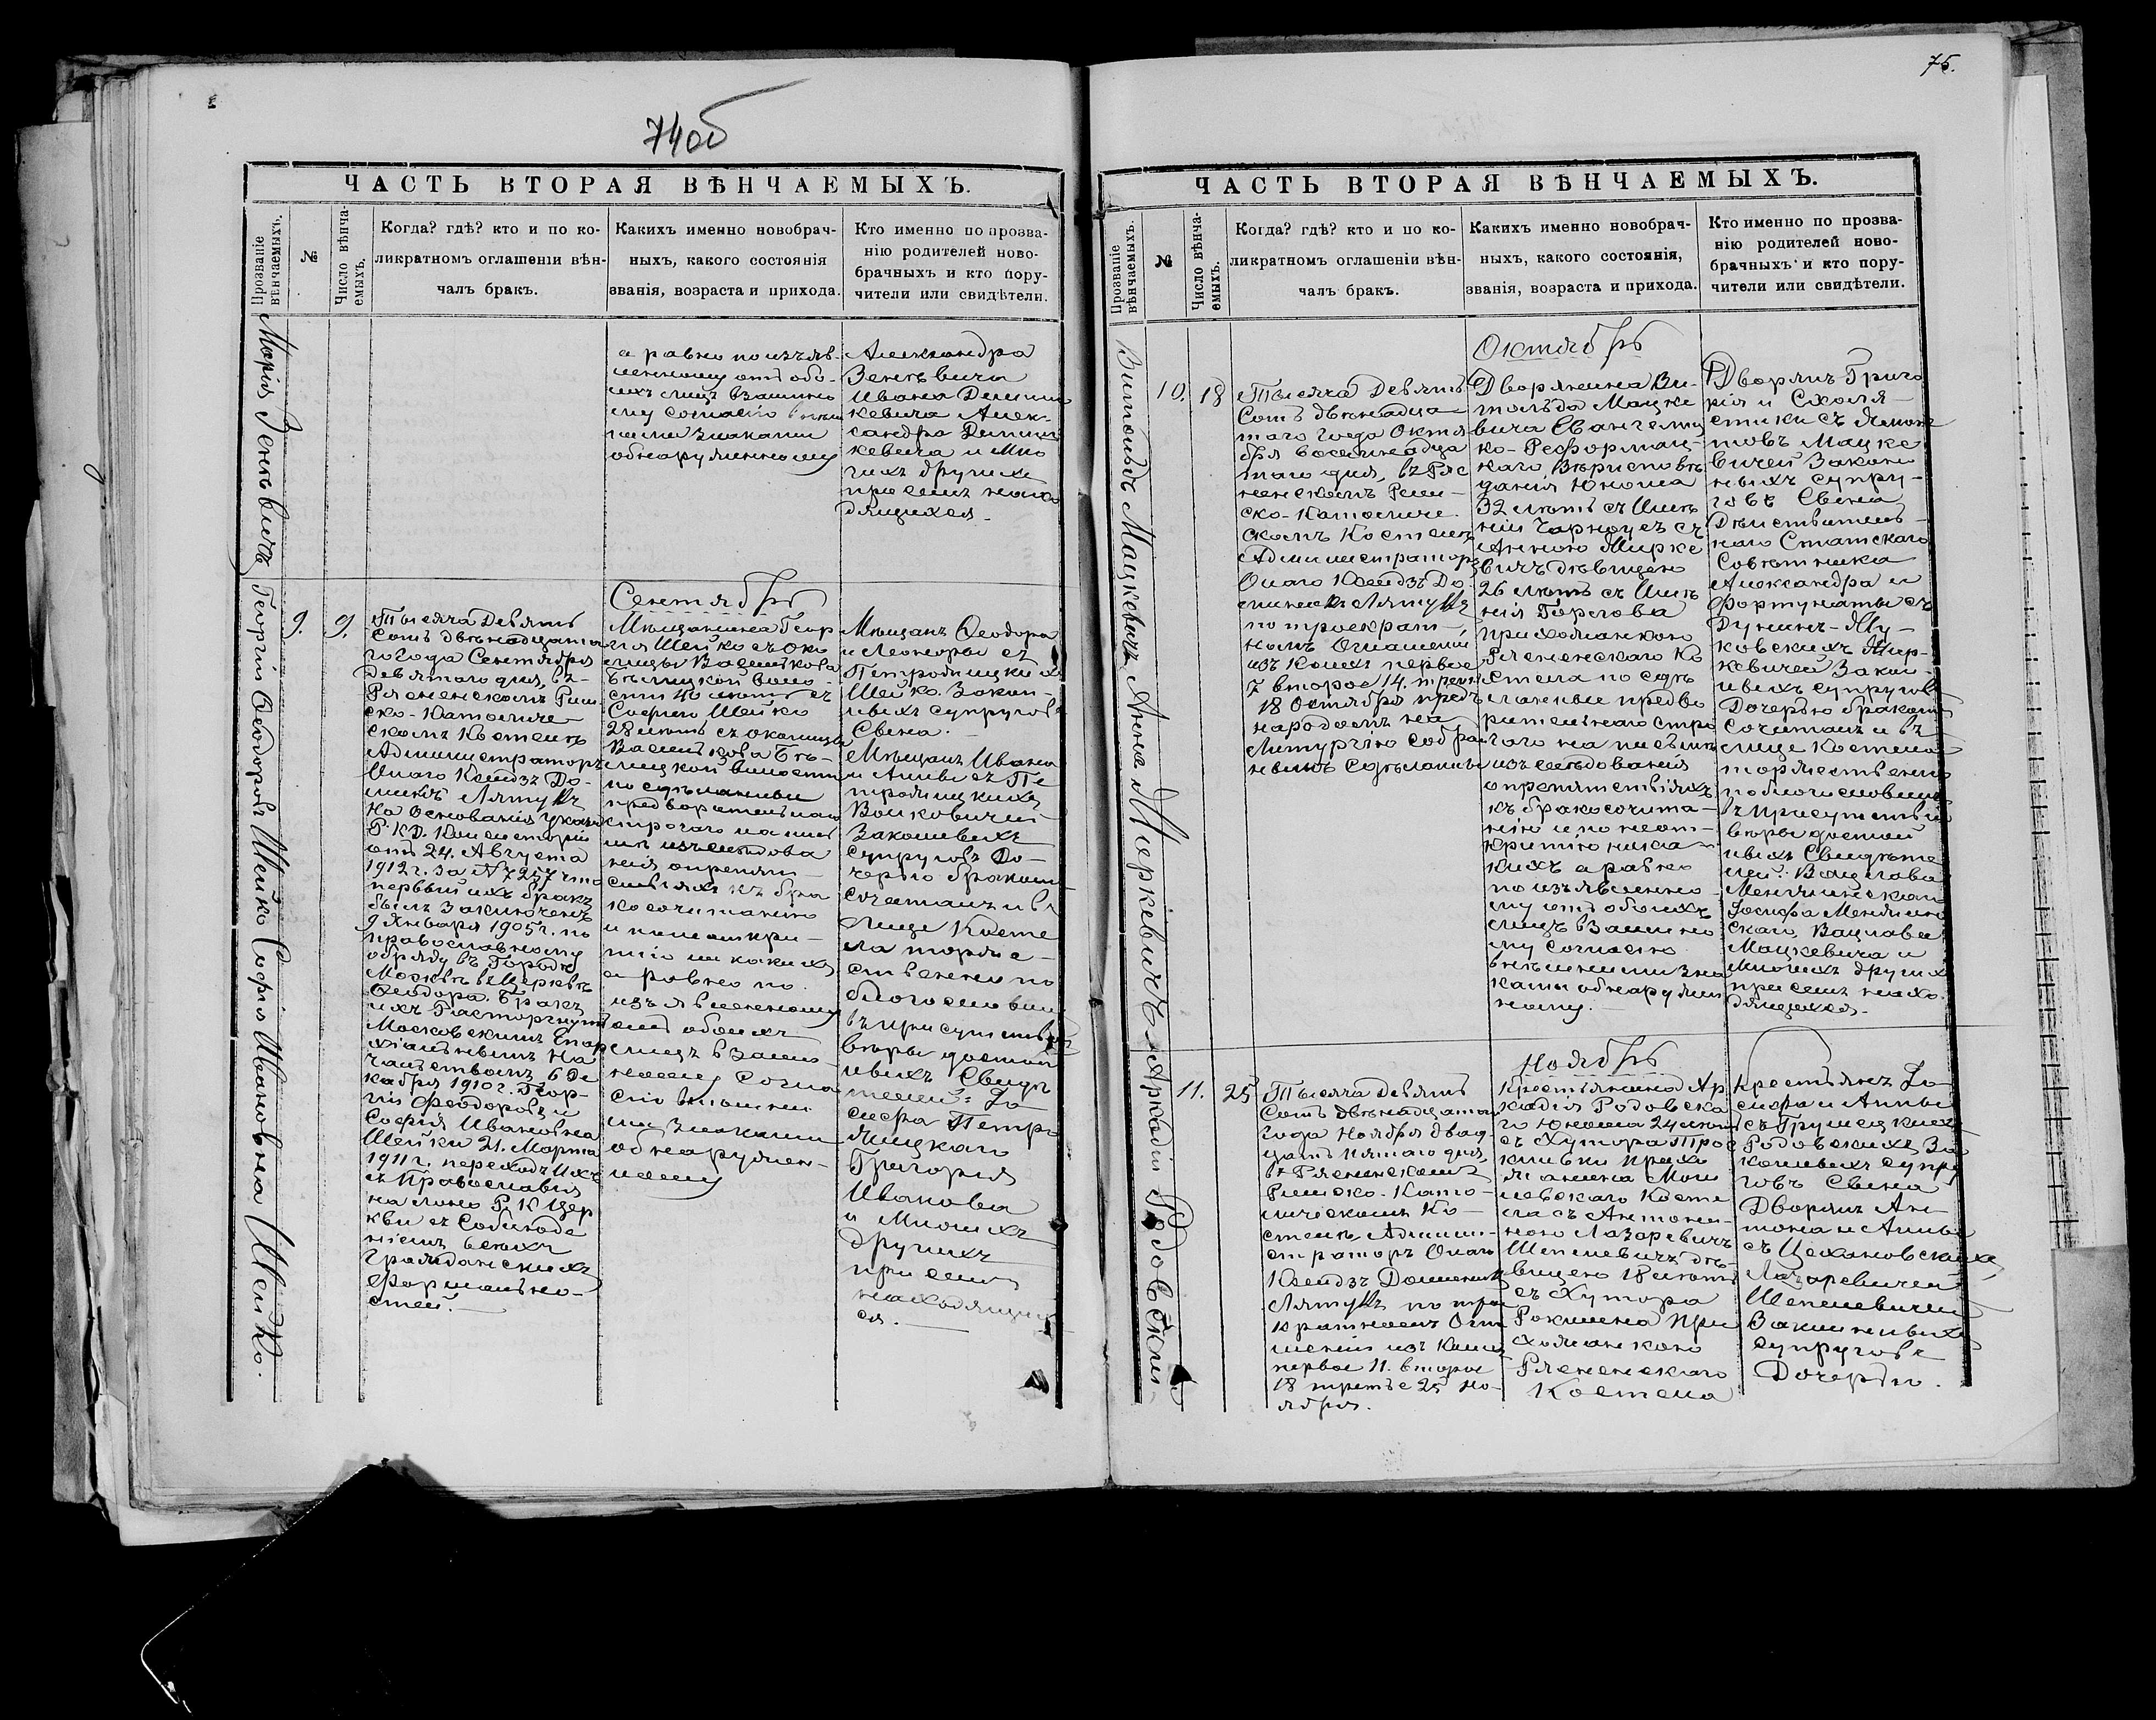 74об
ЧАСТЬ ВТОРАЯ ВѢНЧАЕМЫХЪ.
Прозваніе вѣнчаемыхъ.
№
Число вѣнча-
емыхъ.
Когда? гдѣ? кто и по ко-
ликратномъ оглашеніи вѣн-
чалъ бракъ.
Какихъ именно новобрач-
ныхъ, какого состоянія
званія, возраста и прихода.
Кто именно по прозва-
нію родителей ново-
брачныхъ и кто пору-
чители или свидѣтели.
Марія Зеньвичъ
а равно по изъяв-
ленному отъ обо-
ихъ лицъ взаимно
му согласію внѣш
ними знаками
обнаруженному
Александра
Зеньвича
Ивана
кевича Алек-
сандра
кевича и мно
гихъ другихъ
при семъ нахо
дящихся.
Георгій Ѳеодоровъ Шейко Софія Ивановна Шейко.
9.
9.
Сентябрь
Тысяча девять
сотъ двѣнадцата
го года Сентября
девятаго дня, въ
Рясненскомъ Рим
ско-Католиче
скомъ Костелѣ
Администраторъ
Онаго Ксендзъ До-
миникъ Лятукъ
На основаніи указа
Р. К. Д. Консисторіи
отъ 24. Августа
1912 г. за № 7257 что
первый ихъ бракъ
былъ заключенъ
9 Января 1905 г. по
православному
обряду въ Городѣ
Москвѣ въ Церквѣ
Ѳеодора. Бракъ
ихъ Расторгнутъ
Московскимъ Епар
хіальнымъ На
чальствомъ 6 Де
кабря 1910 г. Геор-
гій Феодоровъ и
Софія Ивановна
Шейки 21. Марта
1911 г. переходъ ихъ
съ Православія
на лоно Р. К Цер
кви съ Соблюде
ніемъ всѣхъ
Гражданскихъ
Формально-
стей.
Мѣщанина Геор
гія Шейко съ око
лицы Василькова
Бѣлицкой воло-
сти 40 лѣтъ съ
Софіею Шейко
28 лѣтъ съ околицы
Василькова Бѣ-
лицкой волости
по сдѣланіи
предворительнаго
строгаго на пись
мѣ изъслѣдова
нія опрепят-
ствіяхъ къ бра
косочитанію
и по неоткры-
тію ни какихъ
а равно по
изъявленному
отъ обоихъ
лицъ взаим
ному Согла
сію внѣшни
ми знаками
обнаружен-
ному
Мѣщанъ Ѳеодора
и Леоноры съ
Петрожицкихъ
Шейко. Закон-
ныхъ супруговъ
Сына.
Мѣщанъ Ивана
и Анны съ Пе
трожицкихъ
Войковичей
Законныхъ
Супруговъ До-
черью бракомъ
сочеталъ и въ
лице Косте
ла торже-
ственно по
благословилъ
въ присутствіи
вѣры достой
ныхъ Свидѣ
телей: Іо
сифа Петро
жицкаго
Григорія
Иванова
и Многихъ
другихъ
при семъ
находящих
ся.
75.
ЧАСТЬ ВТОРАЯ ВѢНЧАЕМЫХЪ.
Прозваніе вѣнчаемыхъ.
№
Число вѣнча-
емыхъ.
Когда? гдѣ? кто и по ко-
ликратномъ оглашеніи вѣн-
чалъ бракъ.
Какихъ именно новобрач-
ныхъ, какого состоянія,
званія, возраста и прихода.
Кто именно по прозва-
нію родителей ново-
брачныхъ и кто пору-
чители или свидѣтели.
Витольдъ Мацкевичъ Анна Миркевичъ
10.
18
Октябрь
Тысяча девять
Сотъ двѣнадца
таго года Октя
бря восемнадца
таго дня, въ Ряс
ненскомъ Рим-
ско-Католиче
скомъ Костелѣ
Администраторъ
Онаго Ксендзъ До-
миникъ Лятукъ
по троекрат-
номъ Оглашеніи
изъ коихъ первое
7 второе 14. третье
18 Октября предъ
народомъ на
Литургію собра
нымъ Сдѣланымъ
Дворянина Ви-
тольда Мацке
вича Евангелиц
ко-Реформат-
скаго Вѣроисповѣ
данія Юноша
32 лѣтъ съ Имѣ
нія съ
Анною Мирке
вичъ дѣвицею
26 лѣтъ съ Имѣ
нія Горегова
прихожанкою
Рясненскаго Ко
стела по сдѣ
ланіи предво
рительнаго стро
гаго на письмѣ
изъслѣдованія
опрепятствіяхъ
къ бракосочита-
нію и по неот-
крытію ника
кихъ а равно
по изъявленно
му отъ обоихъ
лицъ взаимно
му согласію
внѣшними зна
ками обнаружен
ному.
Дворянъ Григо
рія и Схоля-
стики съ
товъ Мацке
вичей Закон
ныхъ супру-
говъ Сына
Дѣйствитель-
наго Статскаго
Совѣтника
Александра и
Фортунаты съ
Дунинъ-Жу-
ковскихъ Мир-
кевичей Закон-
ныхъ супруговъ
Дочерью бракомъ
Сочеталъ и въ
лице Костела
торжественно
поблагословилъ
въ присутствіи
вѣры достой
ныхъ Свидѣте
лей: Вацлава
Менжинскаго
Іосифа Менжин
скаго, Вацлава
Мацкевича и
Многихъ другихъ
при семъ нахо
дящихся.
Аркадій Родовскій
11.
25
Ноябрь
Тысяча девять
Сотъ двѣнадцатаго
года Ноября двад
цать пятаго дня,
въ Рясненскомъ
Римско-Като-
лическомъ Ко-
стелѣ Админи-
страторъ Онаго
Ксендзъ Доминикъ
Лятукъ по трое
кратномъ Огла
шеніи изъ коихъ
первое 11. второе
18 третье 25 Но-
ября.
Крестьянина Ар
кадія Родовска
го Юноша 24 лѣтъ
съ Хутора
прихо
жанина Мои
левскаго Косте
ла съ Антони-
ною Лазаревичъ
Шепелевичъ дѣ-
вицею 18 лѣтъ
съ Хутора
Рокшина При
хожанкою
Рясненскаго
Костела
Крестьянъ Іо
сифа и Анны
съ Грушецкихъ
Родовскихъ За
конныхъ супру
говъ Сына
Дворянъ Ан-
тона и Анны
съ Цехановскихъ
Лазаревичей
Шепелевичей
Законныхъ
супруговъ
Дочерью.